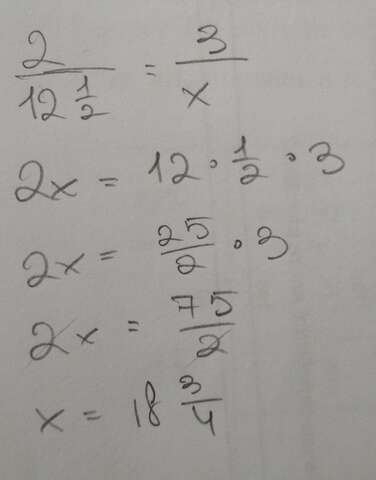 2/(12 1/2) = 3/x
2x = 12 · 1/2 · 3
2x = 25/2 · 3
2x = 75/2
x = 18 3/4